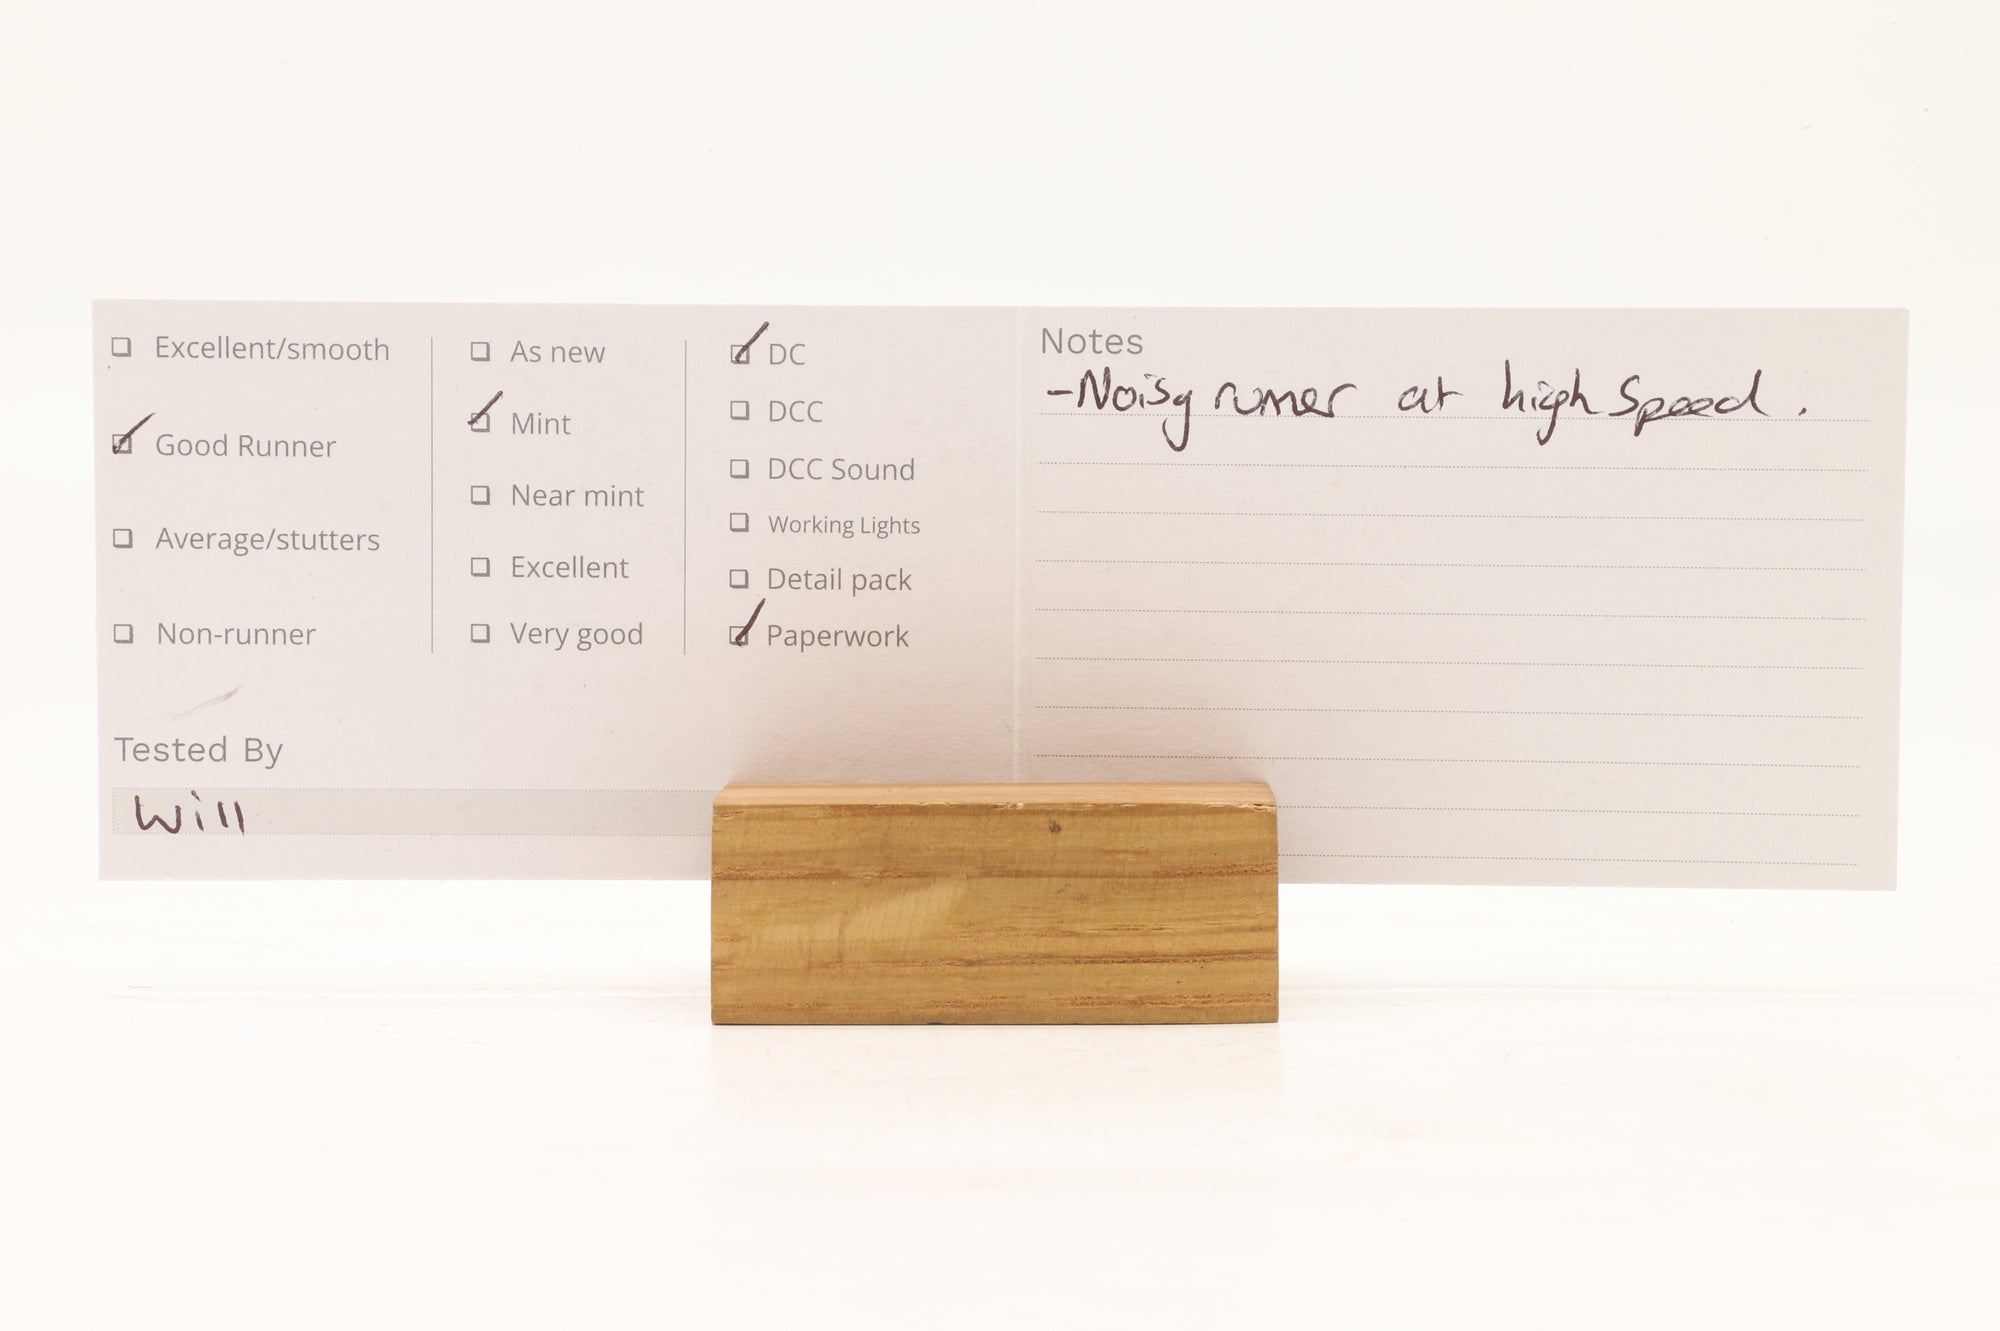 Excellent/smooth
Good Runner
Average/stutters
Non-runner
As new
Mint
Near mint
Excellent
Very good
DC
DCC
DCC Sound
Working Lights
Detail pack
Paperwork
Tested By
Will
Notes
-Noisy runner at high speed.